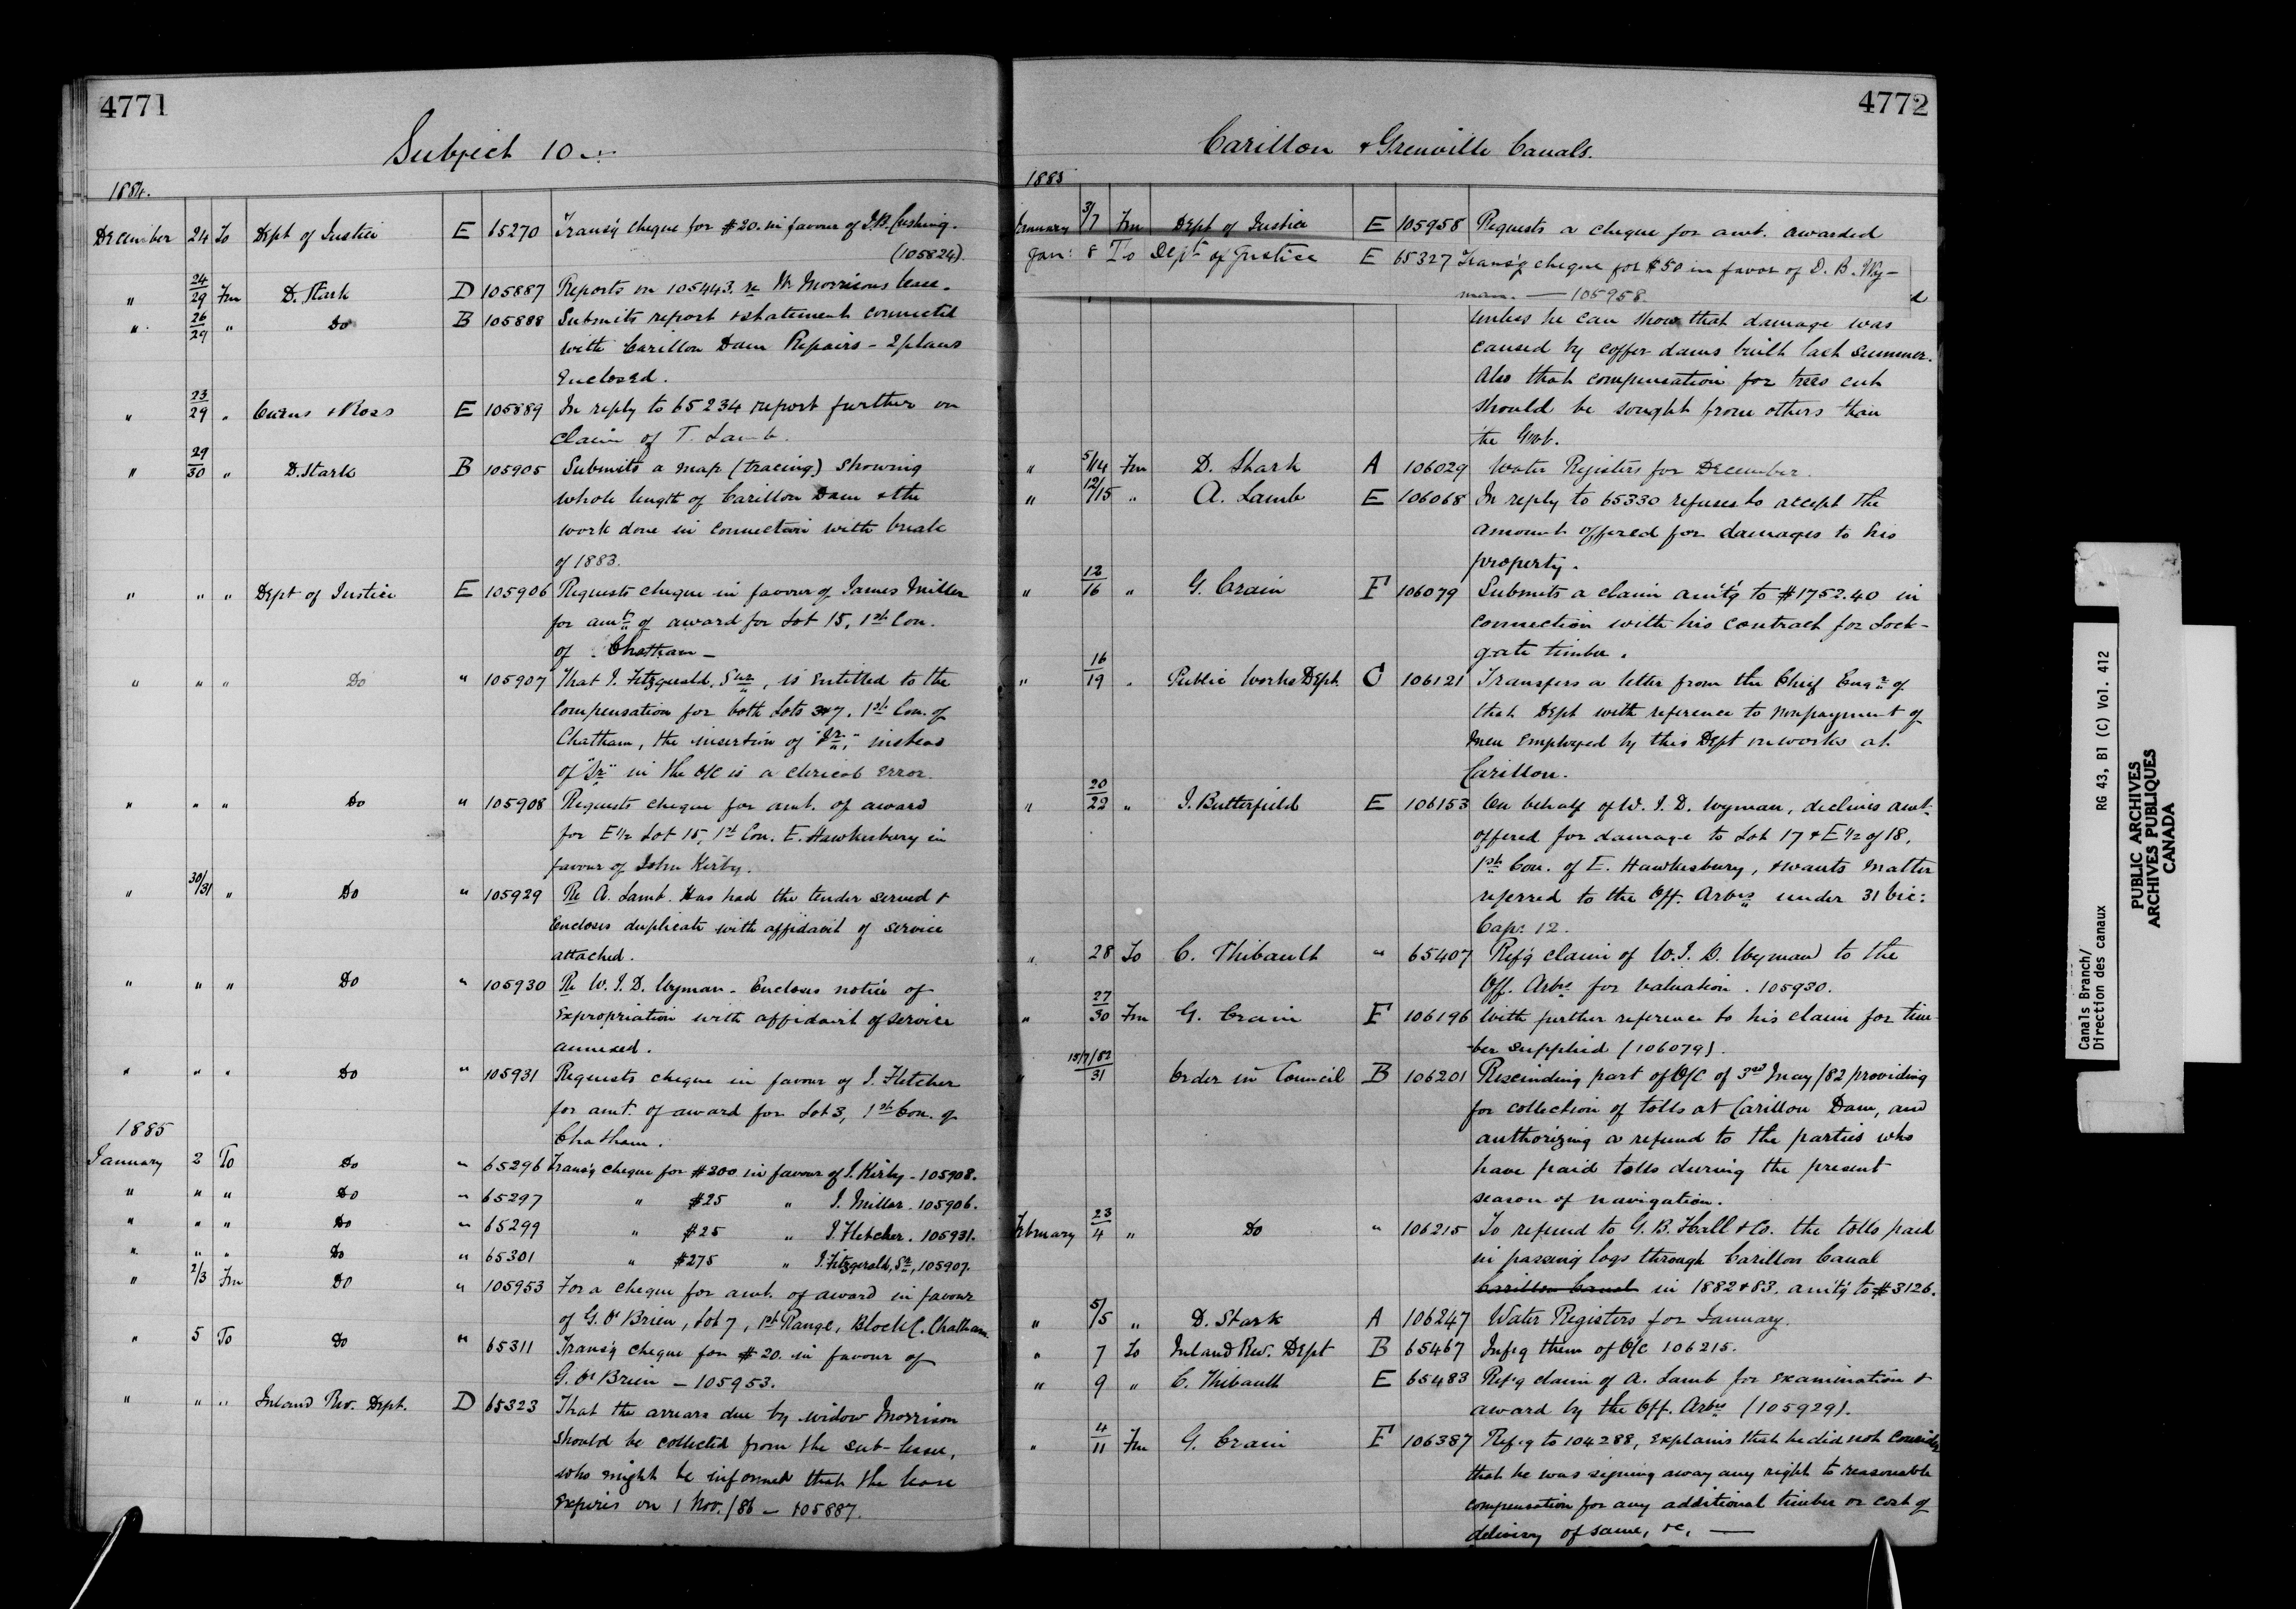 4771
Subject 10
1884.
December 24 To Dept of Justice E 65270 Trans'g cheque for $20. in favour of J.B. Cushing.
(105824).
" 24/29 Fm D. Stark D 105887 Reports on 105443. re W. Morrisons lease.
" 26/29 " Do B 105888 Submits report & statement connected
with Carillon Dam Repairs - 2 plans
Enclosed.
" 23/29 " Cairns & Ross E 105889 In reply to 65234 report further on
claim of T. Lamb.
" 29/30 " D. Stark B 105905 Submits a map (tracing) showing
whole length of Carillon Dam & the
work done in connection with break
of 1883.
" " " Dept of Justice E 105906 Requests cheque in favour of James Miller
for amt of award for Lot 15, 1st Con.
of Chatham -
" " " Do " 105907 That J. Fitzgerald, Snr, is entitled to the
compensation for both Lots 3 & 7. 1st Con. of
Chatham, the insertion of "Jr." instead
of "Sr" in the O/C is a clerical error.
" " " Do " 105908 Requests cheque for amt. of award
for E 1/2 Lot 15, 1st Con. E. Hawkesbury in
favour of John Kirby.
" 30/31 " Do " 105929 Re A. Lamb. Has had the tender served &
Encloses duplicate with affidavit of service
attached.
" " " Do " 105930 Re W. J. D. Wyman - Encloses notice of
Expropriation with affidavit of service
annexed.
" " " Do " 105931 Requests cheque in favour of J. Fletcher
for amt. of award for Lot 3, 1st Con. of
Chatham.
1885
January 2 To Do " 65296 Trans'g cheque for $200 in favour of J. Kirby - 105908.
" " " Do " 65297 " $25 " J. Miller. 105906.
" " " Do " 65299 " $25 " J. Fletcher. 105931.
" " " Do " 65301 " $275 " J. Fitzgerald, Sr, 105907.
" 2/3 Fm Do " 105953 For a cheque for amt. of award in favour
of G. O'Brien, Lot 7, 1st Range, Block C. Chatham.
" 5 To Do " 65311 Trans'g cheque for $20. in favour of
G. O'Brien - 105953.
" " " Inland Rev. Dept. D 65323 That the arrears due by widow Morrison
should be collected from the sub-lessee,
who might be informed that the lease
Expires on 1 Nov./86 - 105887.
4772
Carillon & Grenville Canals.
1885
January 31/7 Fm Dept of Justice E 105958 Requests a cheque for amt. awarded
Jan: 8 To Dept of Justice E 65327 Trans'g cheque for $50 in favor of D. B. Wy-
man. - 105958.
unless he can show that damage was
caused by coffer dams built last summer.
Also that compensation for trees cut
should be sought from others than
the Govt.
" 5/14 Fm D. Stark A 106029 Water Registers for December.
" 12/15 " A. Lamb E 106068 In reply to 65330 refuses to accept the
amount offered for damages to his
property.
" 12/16 " G. Crain F 106079 Submits a claim am't'g to $1752.40 in
connection with his contract for Lock-
gate timber.
" 16/19 " Public Works Dept. C 106121 Transfers a letter from the Chief Engr of
that Dept with reference to nonpayment of
men employed by this Dept in works at
Carillon.
" 20/22 " J. Butterfield E 106153 On behalf of W. J. D. Wyman, declines amt.
offered for damage to Lot 17 & E 1/2 of 18,
1st Con. of E. Hawkesbury, & wants matter
referred to the Off. Arbrs under 31 Vic:
Cap: 12.
" 28 To C. Thibault " 65407 Ref'g claim of W. J. D. Wyman to the
Off. Arbrs for valuation. 105930.
" 27/30 Fm G. Crain F 106196 With further reference to his claim for tim-
-ber supplied (106079).
" 15/7/82/31 Order in Council B 106201 Rescinding part of O/C of 3rd May/82 providing
for collection of tolls at Carillon Dam, and
authorizing a refund to the parties who
have paid tolls during the present
season of navigation.
February 23/4 " Do " 106215 To refund to G. B. Hall & Co. the tolls paid
in passing logs through Carillon Canal
Carillon Canal in 1882 & 83. am't'g to $3126.
" 5/5 " D. Stark A 106247 Water Registers for January.
" 7 To Inland Rev. Dept B 65467 Inf'g them of O/C 106215.
" 9 " C. Thibault E 65483 Ref'g claim of A. Lamb for examination &
award by the Off. Arbrs (105929).
" 4/11 Fm G. Crain F 106387 Ref'g to 104288, explains that he did not consider
that he was signing away any right to reasonable
compensation for any additional timber or cost of
delivery of same, &c. -
Canals Branch/ RG 43, B1 (C) Vol. 412
Direction des canaux
PUBLIC ARCHIVES
ARCHIVES PUBLIQUES
CANADA